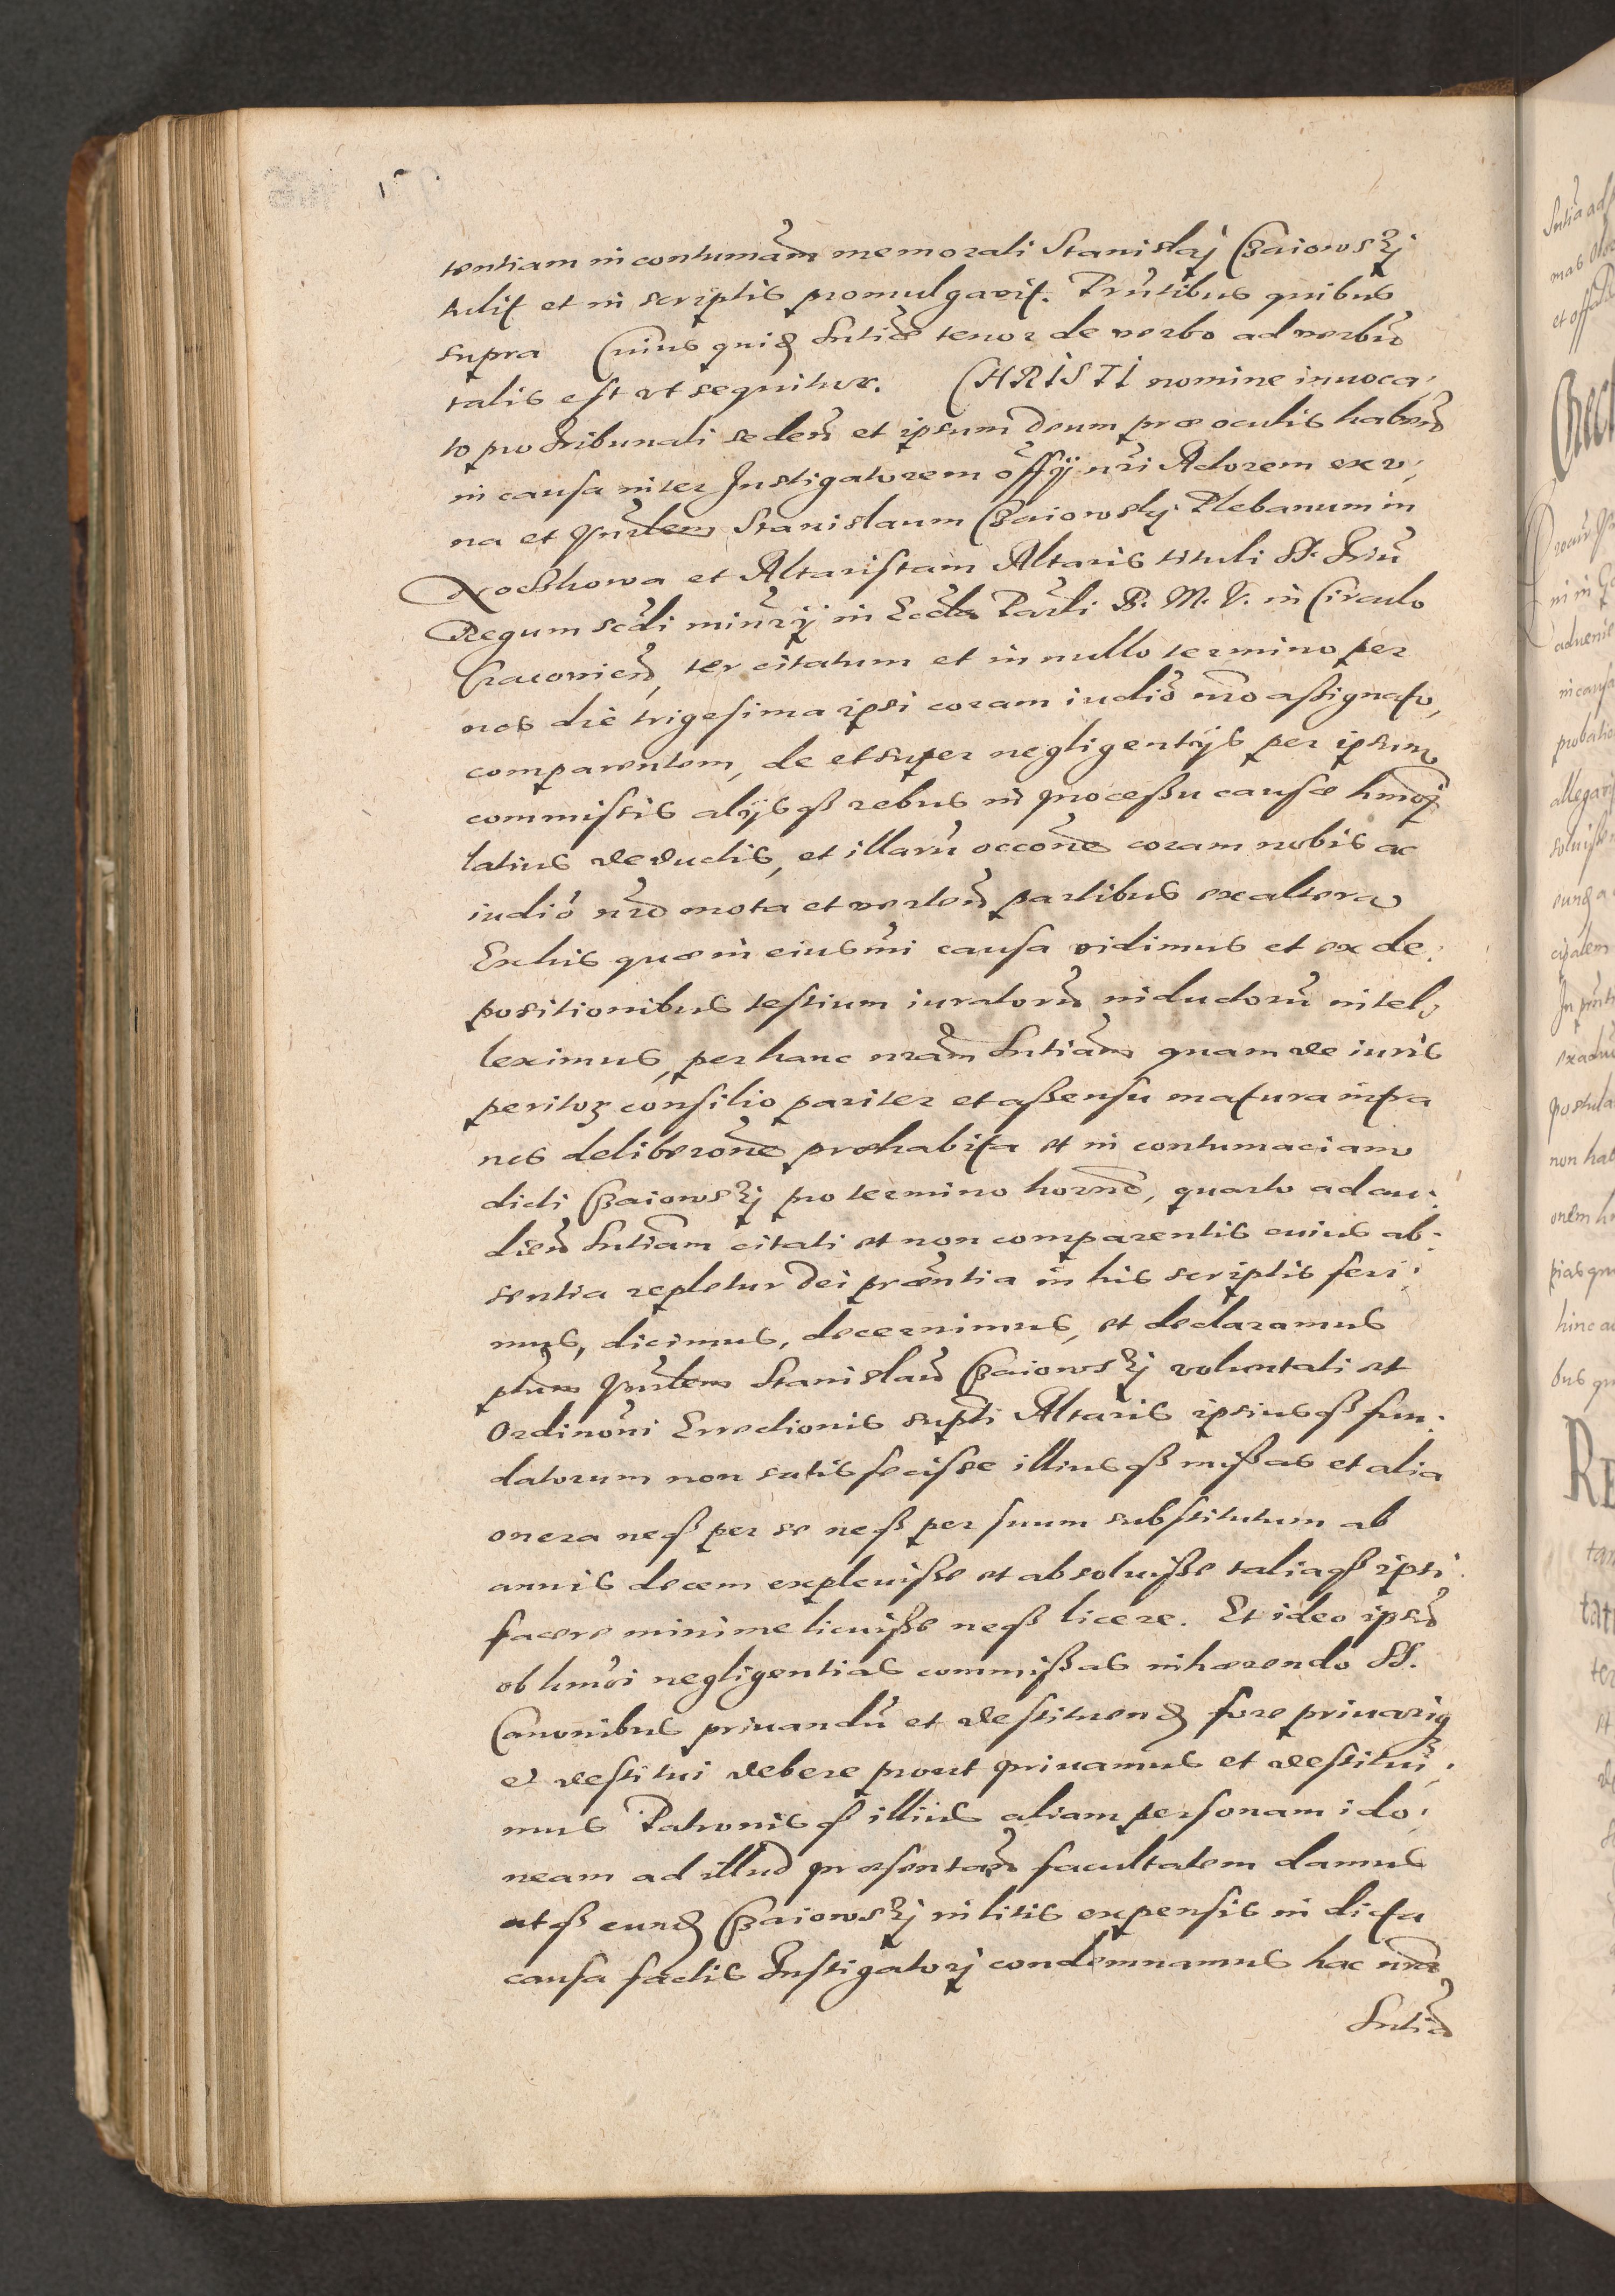 tentiam in contumām memorati Stanislaj Czaiowskj
tulit et in scriptis promulgavit. Prntibus quibus
supra Cuius quid. Sntiæ tenor de verbo ad verbū
talis est ut sequitur. CHRISTI nomine inuoca-
to pro tribunali seden et ipsum Deum præ oculis haben
in causa inter Instigatorem offij nri Actorem ex v-
na et Vnrlem Stanislaum Czaiowsky Plebanum in
et Altaristam Altaris tituli SS. Triū
Regum scdi minrÿ in Eccla Parli B. M. V. in Circulo
Cracovien, ter citatum et in nullo termino per
nos die trigesima ipsi coram iudiō nro assignato,
comparentem, de et super negligentijs per ipsum
commissis alijsq rebus in processu causæ hmōi
latius deductis, et illarū occōne coram nobis ac
iudiō nro mota et verten partibus ex altera
Ex his quæ in eiusmi causa vidimus et ex de-
positionibus testium iuratorū inductorū intel-
leximus, per hanc nram Sntiam quam de iuris
peritoꝝ consilio pariter et assensu matura intra
nos deliberōne præhabita et in contumaciam
dicti Czaiowskj pro termino horno, quarto ad au-
dien Sntiam citati et non comparentis cuius ab-
sentia repletur Dei præntia in his scriptis feri-
mus, dicimus, decernimus, et declaramus
ptum Vnrlem Stanislaū Czaiowskj voluntati et
Ordinōni Erectionis supti Altaris ipsiusq fun-
datorum non satisfecisse illiusq missas et alia
onera neq per se neq per suum substitutum ab
annis decem explevisse et absoluisse taliaq ipsi
facere minime licuisse neq licere. Et ideo ipsū
ob hmōi negligentias commissas inhærendo SS.
Canonibus priuandū et destituend fore priuariq
et destitui debere prout priuamus et destitui-
mus Patronisq illius aliam personam ido-
neam ad illud præsentan facultatem damus
atq eund Czaiowskj in litis expensis in dicta
causa factis Instigatorj condemnamus hac nra
Sntia